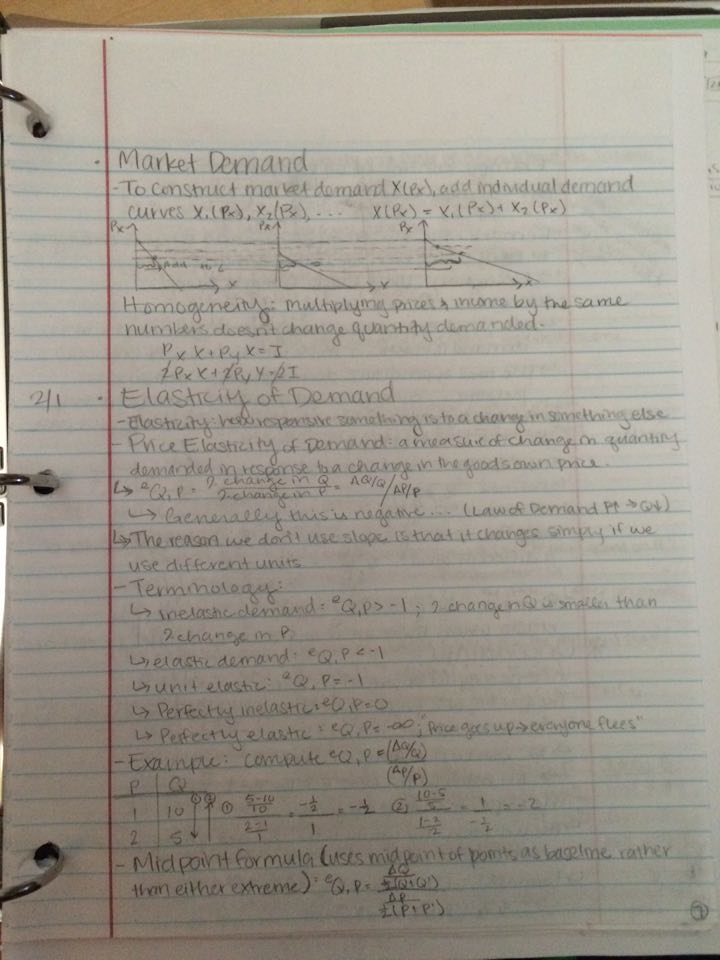 · Market Demand
- To construct market demand X(Px), add individual demand
curves X₁(Px), X₂(Px), ... X(Px) = X₁(Px) + X₂(Px)
Px Px Px
x x x
Homogeneity: multiplying prices & income by the same
numbers doesn't change quantity demanded.
Px X + Py X = I
2Px X + 2Py Y = 2I
2/1 · Elasticity of Demand
- Elasticity: how responsive something is to a change in something else
- Price Elasticity of Demand: a measure of change in quantity
demanded in response to a change in the good's own price.
↳ eQ,P = % change in Q / % change in P = ΔQ/Q / ΔP/P
↳ Generally this is negative ... (Law of Demand P↑ → Q↓)
↳ The reason we don't use slope is that it changes simply if we
use different units
- Terminology:
↳ inelastic demand: eQ,P > -1; % change in Q is smaller than
% change in P.
↳ elastic demand: eQ,P < -1
↳ unit elastic: eQ,P = -1
↳ Perfectly inelastic: eQ,P = 0
↳ Perfectly elastic: eQ,P = -∞; "Price goes up → everyone flees"
- Example: compute eQ,P = (ΔQ/Q) / (ΔP/P)
P Q
1 10 ① ② ① (5-10)/10 / (2-1)/1 = -½ / 1 = -½ ② (10-5)/5 / (1-2)/2 = 1 / -½ = -2
2 5
- Midpoint formula (uses midpoint of points as baseline rather
than either extreme): eQ,P = ΔQ / ½(Q+Q') / ΔP / ½(P+P')
⑦